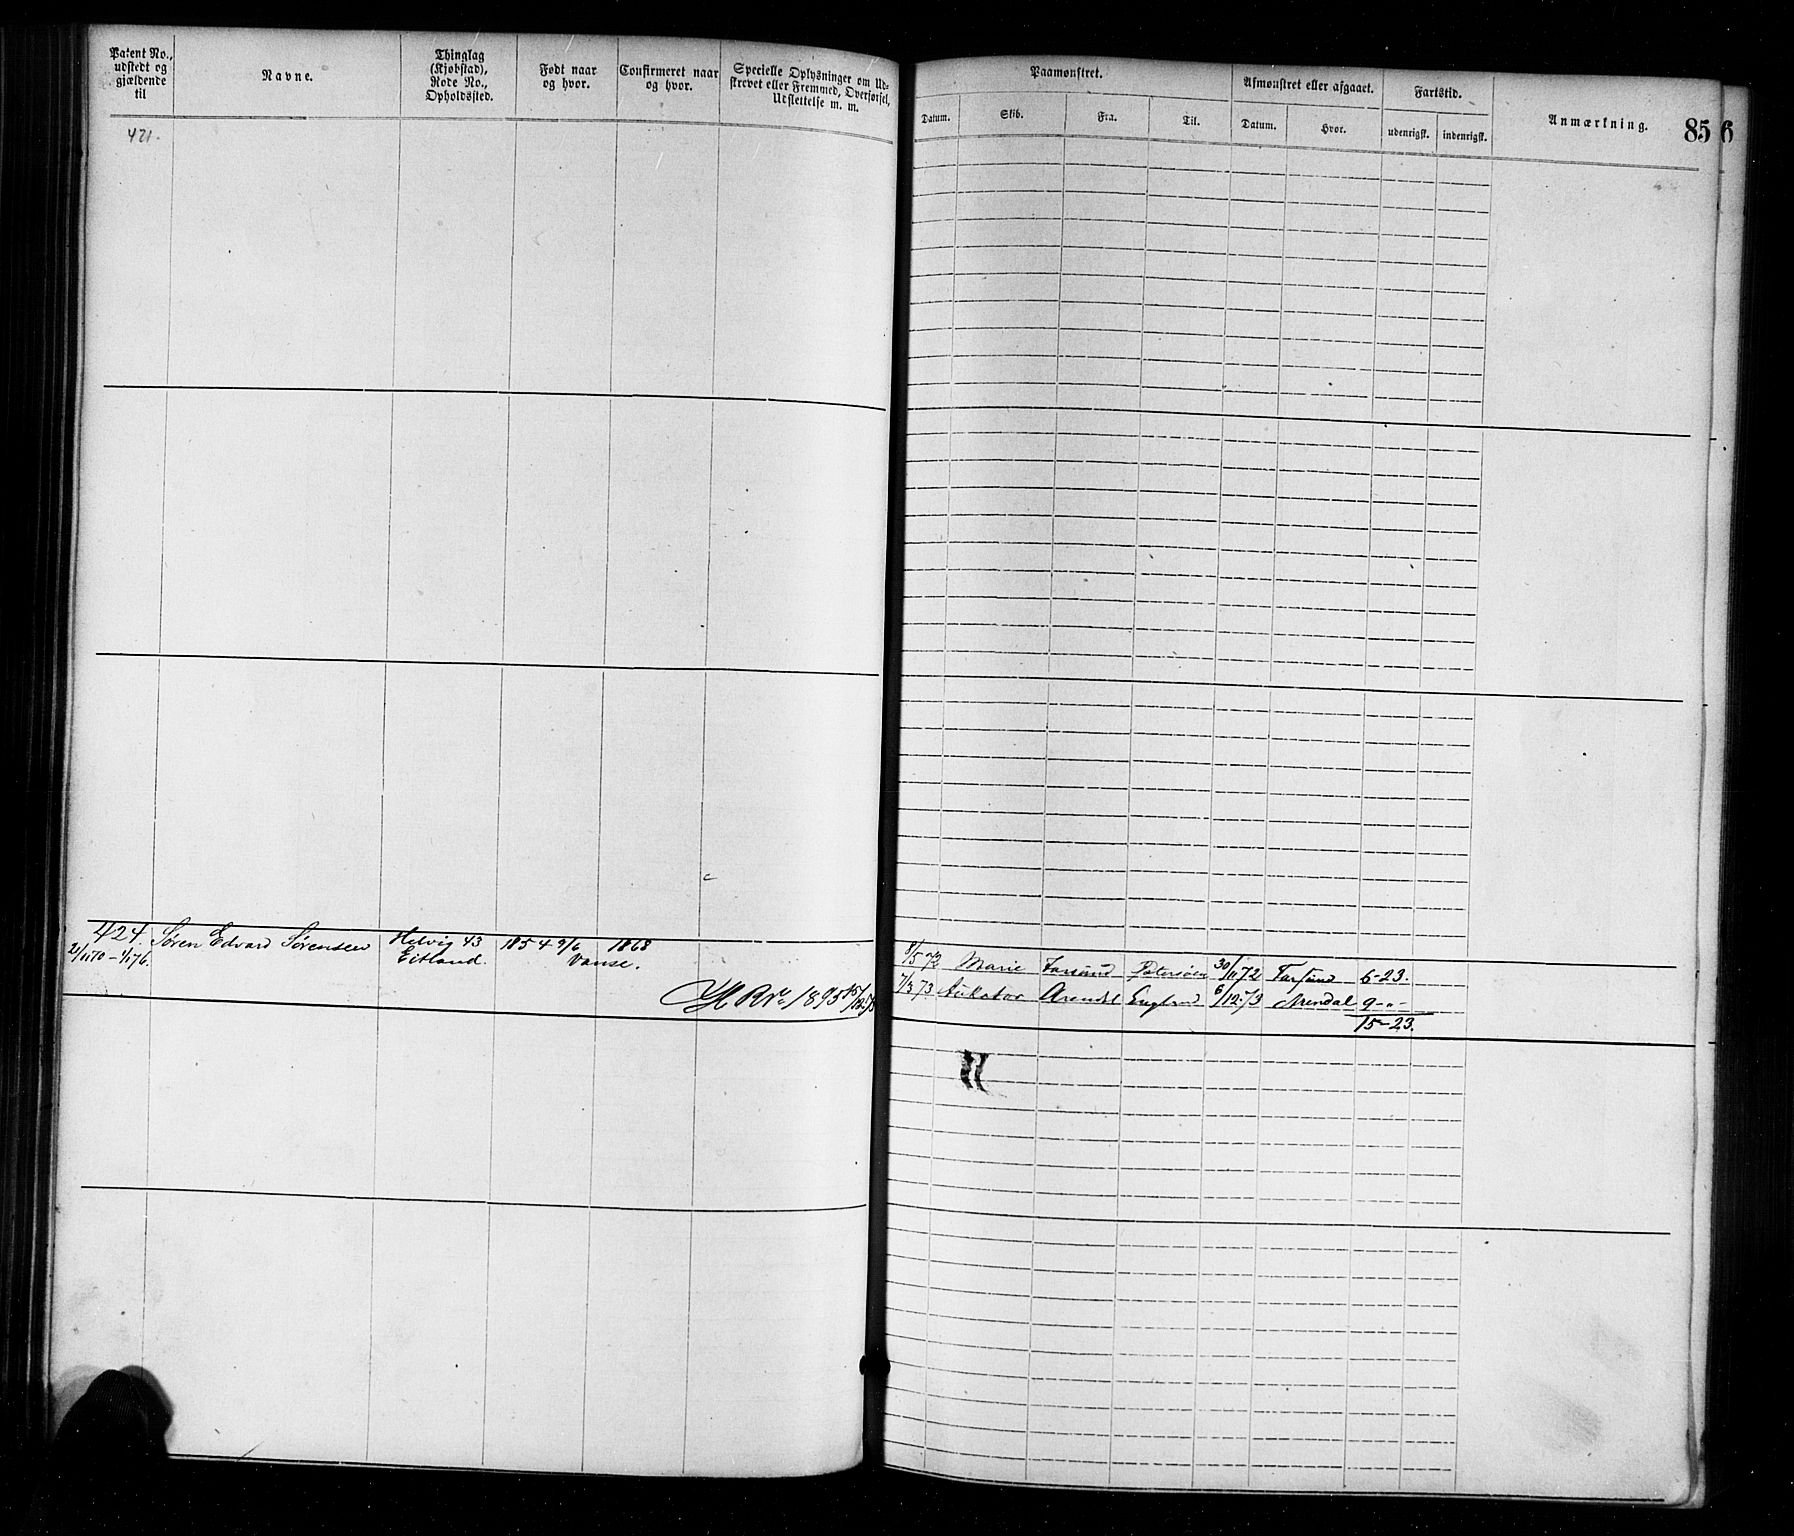 Patent No., udstedt og gjældende til
Navne.
Thinglag (Kjøbstad), Rode No., Opholdssted.
Født naar og hvor.
Confirmeret naar og hvor.
Specielle Oplysninger om Udskrevet eller Fremmed, Overførsel, Udslettelse m. m.
Paamønstret.
Afmønstret eller afgaaet.
Fartstid.
Datum.
Skib.
Fra.
Til.
Datum.
Hvor.
udenrigsk.
indenrigsk.
Anmærkning.
85
6
421.
424. Søren Edvard Sørensen Helvig 43 1854 9/6 1868
Eitland. Vanse.
8/5 72 Marie Farsund 30/11 72 Farsund 6-23.
7/3 73 Arendal England 6/12 73 Arendal 9-"-
15-23.
H R No 1895 15/12 73